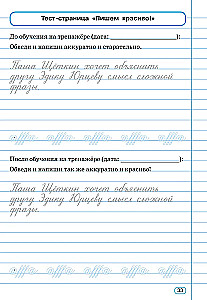 Тест-страница «Пишем красиво!»
До обучения на тренажёре (дата: ____________):
Обведи и напиши аккуратно и старательно.
Паша Щёткин хочет объяснить
другу Эдику Юрцеву смысл сложной
фразы.
После обучения на тренажёре (дата: ____________):
Обведи и напиши так же аккуратно и красиво!
Паша Щёткин хочет объяснить
другу Эдику Юрцеву смысл сложной
фразы.
33